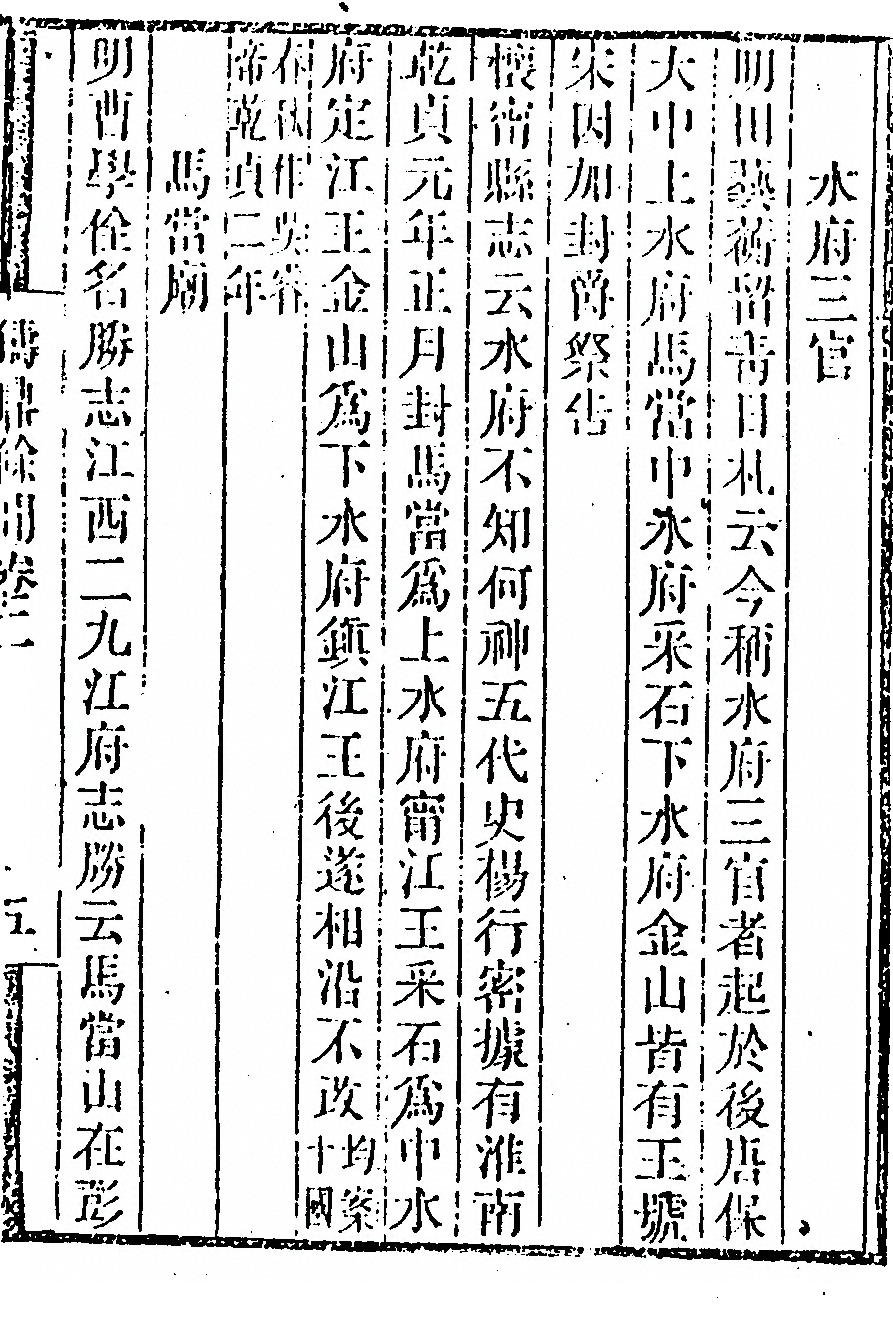 水府三官
明田藝蘅留青日札云今稱水府三官者起於後唐保
大中上水府馬當中水府采石下水府金山皆有王號
宋因加封爵祭告
懷甯縣志云水府不知何神五代史楊行密據有淮南
乾貞元年正月封馬當爲上水府甯江王采石爲中水
府定江王金山爲下水府鎮江王後遂相沿不改均案
十國
春秋作吳睿
帝乾貞二年
馬當廟
明曹學佺名勝志江西二九江府志勝云馬當山在彭
鑄鼎餘聞卷二
五